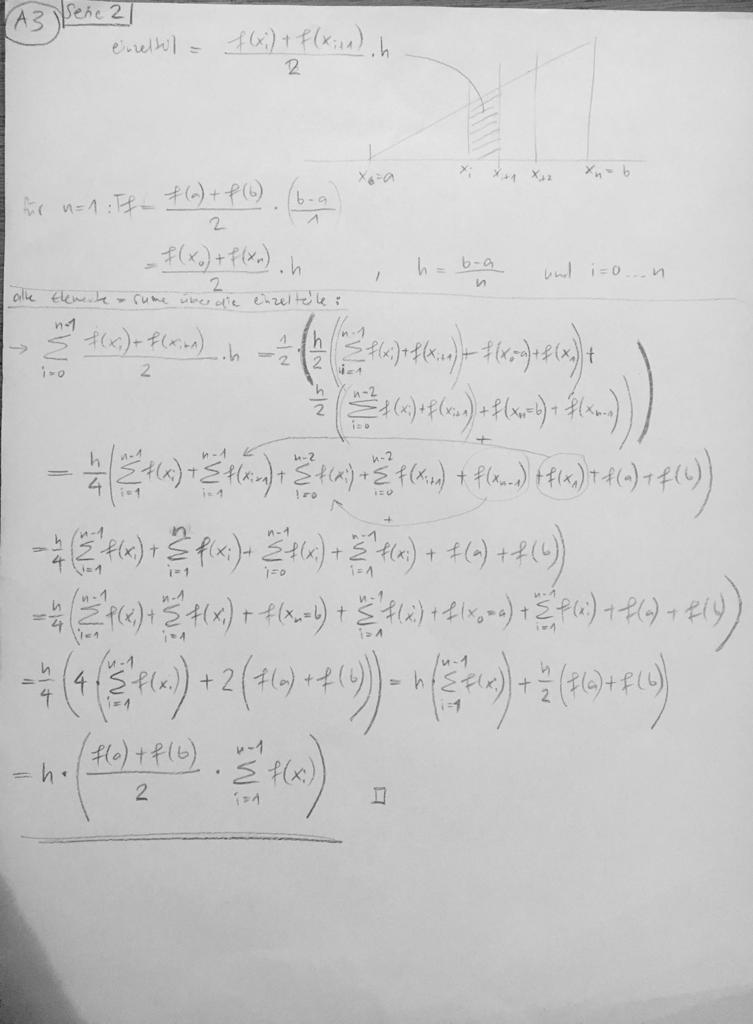 A3 Serie 2
einzelteil = \frac{f(x_i) + f(x_{i+1})}{2} \cdot h
x_0=a x_i x_{i+1} x_{i+2} x_n = b
für n=1 : Tf = \frac{f(a) + f(b)}{2} \cdot \left(\frac{b-a}{1}\right)
= \frac{f(x_0) + f(x_n)}{2} \cdot h , h = \frac{b-a}{n} und i=0...n
alle Elemente = sume über die einzelteile :
→ \sum_{i=0}^{n-1} \frac{f(x_i) + f(x_{i+1})}{2} \cdot h = \frac{1}{2} \cdot \left( \frac{h}{2} \left( \left( \sum_{i=1}^{n-1} f(x_i) + f(x_{i+1}) \right) + f(x_0=a) + f(x_1) \right) +
\frac{h}{2} \left( \left( \sum_{i=0}^{n-2} f(x_i) + f(x_{i+1}) \right) + f(x_n=b) + f(x_{n-1}) \right) \right)
= \frac{h}{4} \left( \sum_{i=1}^{n-1} f(x_i) + \sum_{i=1}^{n-1} f(x_{i+1}) + \sum_{i=0}^{n-2} f(x_i) + \sum_{i=0}^{n-2} f(x_{i+1}) + f(x_{n-1}) + f(x_1) + f(a) + f(b) \right)
= \frac{h}{4} \left( \sum_{i=1}^{n-1} f(x_i) + \sum_{i=1}^{n} f(x_i) + \sum_{i=0}^{n-1} f(x_i) + \sum_{i=1}^{n-1} f(x_i) + f(a) + f(b) \right)
= \frac{h}{4} \left( \sum_{i=1}^{n-1} f(x_i) + \sum_{i=1}^{n-1} f(x_i) + f(x_n=b) + \sum_{i=1}^{n-1} f(x_i) + f(x_0=a) + \sum_{i=1}^{n-1} f(x_i) + f(a) + f(b) \right)
= \frac{h}{4} \left( 4 \left( \sum_{i=1}^{n-1} f(x_i) \right) + 2 \left( f(a) + f(b) \right) \right) = h \left( \sum_{i=1}^{n-1} f(x_i) \right) + \frac{h}{2} \left( f(a) + f(b) \right)
= h \cdot \left( \frac{f(a) + f(b)}{2} \cdot \sum_{i=1}^{n-1} f(x_i) \right) □